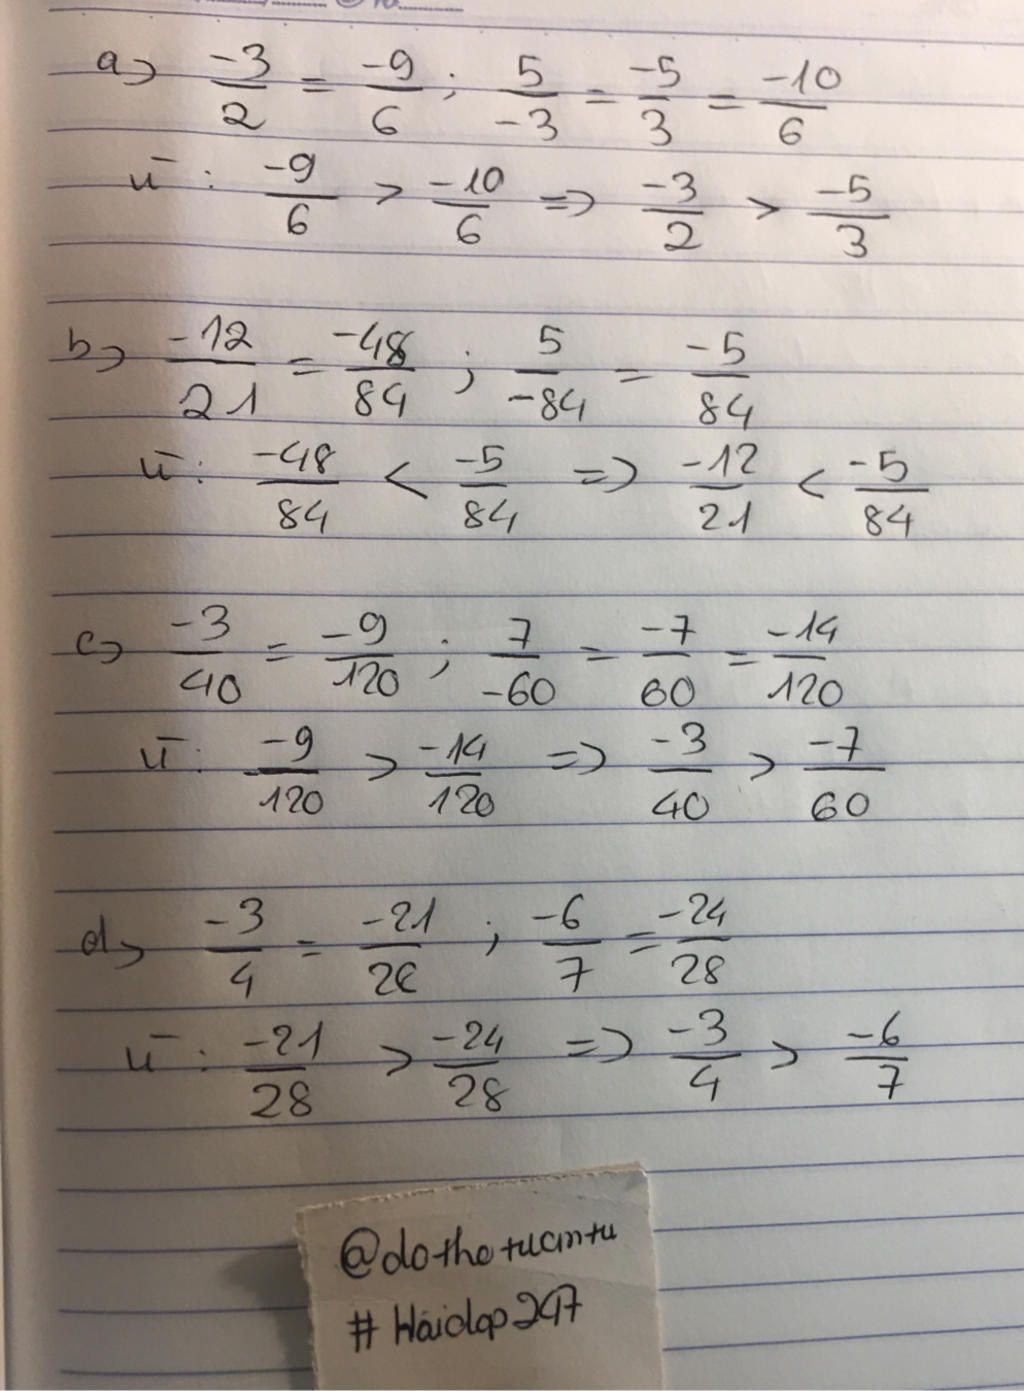 a) -3/2 = -9/6 ; 5/-3 = -5/3 = -10/6
vì : -9/6 > -10/6 => -3/2 > -5/3
b) -12/21 = -48/84 ; 5/-84 = -5/84
vì : -48/84 < -5/84 => -12/21 < -5/84
c) -3/40 = -9/120 ; 7/-60 = -7/60 = -14/120
vì : -9/120 > -14/120 => -3/40 > -7/60
d) -3/4 = -21/28 ; -6/7 = -24/28
vì : -21/28 > -24/28 => -3/4 > -6/7
@dothetuantu
#Hoidap247